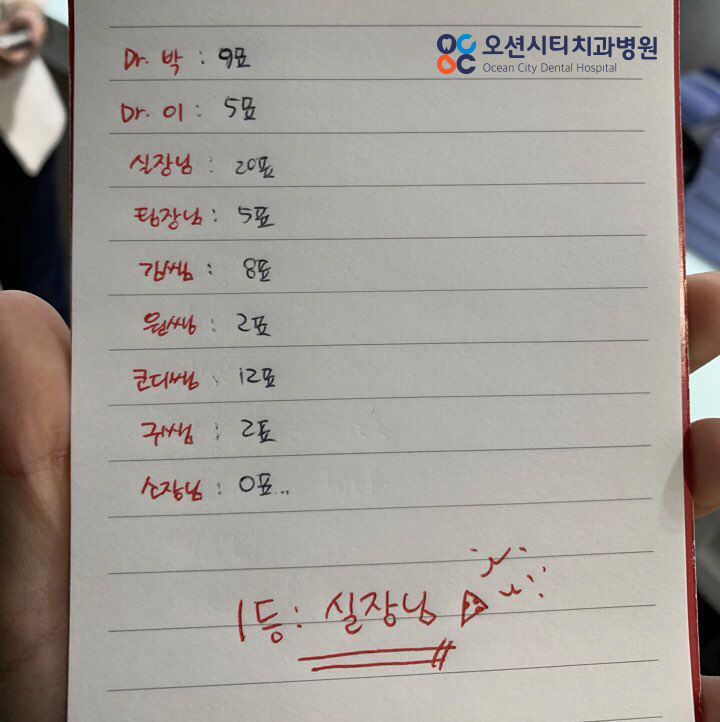 오션시티치과병원
Ocean City Dental Hospital
Dr. 박 : 9표
Dr. 이 : 5표
실장님 : 20표
팀장님 : 5표
김쌤 : 8표
원쌤 : 2표
코디쌤 : 12표
귀쌤 : 2표
소장님 : 0표...
1등 : 실장님